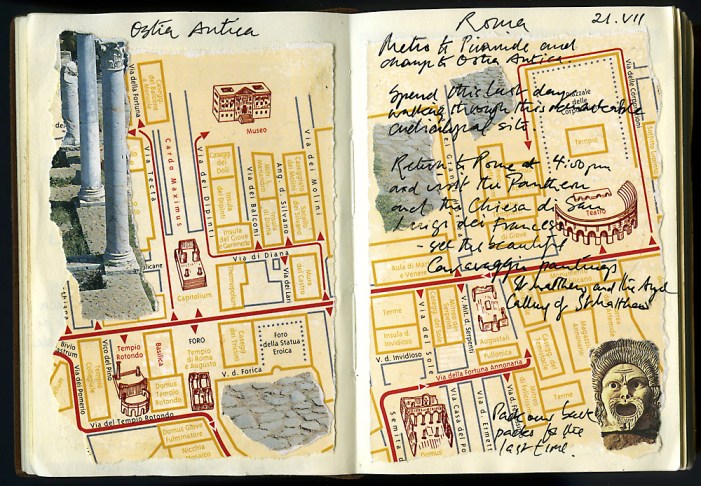 Ostia Antica
Via della Fortuna
Caseggi. dei Doli
Museo
Via Tecta
Cardo Maximus
Via dei Dipinti
Caseg. dei Doli
Insula dei Dipinti
Insula di Giove e Ganimede
Via dei Balconi
Ang. d. Silvano
Via dei Molini
Via di Diana
Thermopolium
Via dei Lari
Capitolium
Bivio
Tempio Rotondo
Basilica
FORO
Tempio di Roma e Augusto
Caseg. dei Triclini
Foro della Statua Eroica
V. d. Forica
Vico del Pino
Via del Pomerio
Domus Tempio Rotondo
Via del Tempio Rotondo
Domus Giove Fulminatore
Nicchia Mosaico
Roma
21.VII
Metro to Piramide and
change to Ostia Antica
Spend this last day
walking through this remarkable
archeological site
Return to Rome at 4:00pm
and visit the Pantheon
and the Chiesa di San
Luigi dei Francesi
- see the beautiful
Caravaggio paintings
St Matthew and the Angel
Calling of St Matthew
Piazzale delle
Via delle Corporazioni
Tempio
Teatro
Aula di Marte e Venere
Terme
Insula d. Invidioso
Via del Sole
V. Mitr. d. Serpenti
Augustali
Fullonica
V. d. Invidioso
Via della Fortuna Annonaria
Terme
Semita d
Via Casa del Po
Via d. Ermet
Pack our back
packs for the
last time.